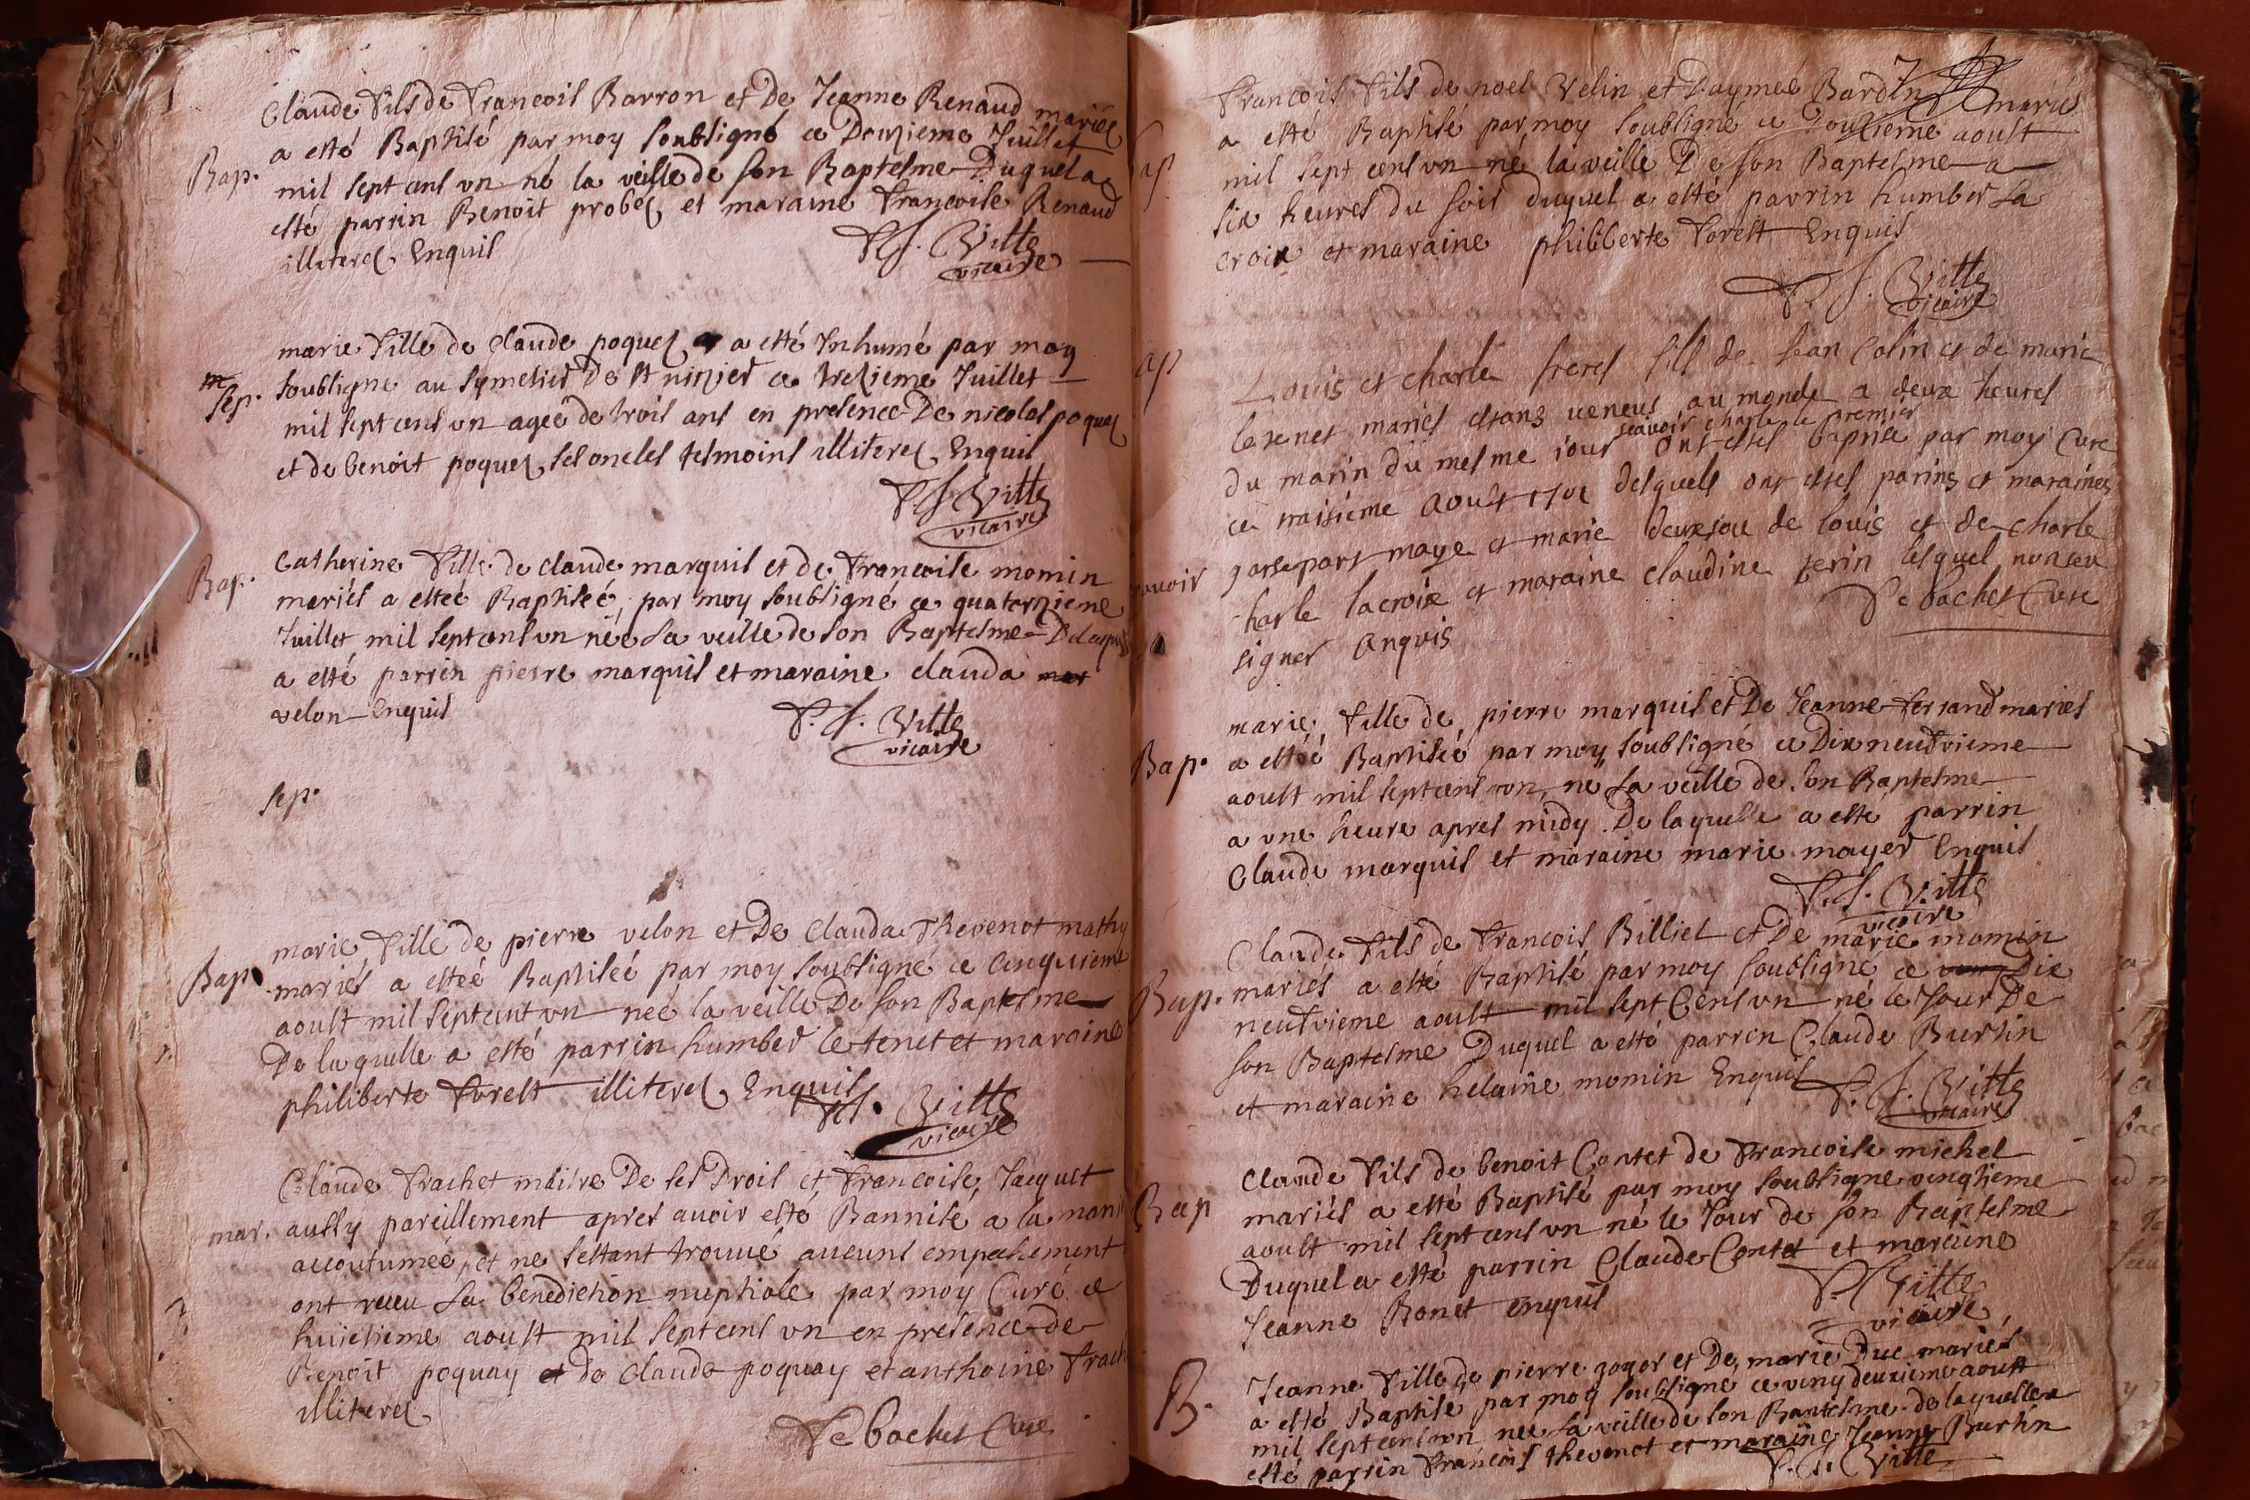 Claude fils de francois Barron et De Jeanne Renaud mariez
a esté Baptisé par moy soubsigné ce Douzieme Juillet
Bap. mil sept cens vn né la veille de son Baptesme Duquel a
esté parrin Benoit probez et maraine francoise Renaud
illiterez Enquis
Vitte
vicaire
marie fille de Claude poquez a esté Inhumé par moy
Sep. soubsigne au Symetier De St nizier ce treizieme Juillet
mil sept cens vn agee de trois ans en presence De nicolas poquez
et de benoit poquez ses oncles tesmoins illiterez Enquis
Vitte
vicaire
Catherine fille de claude marquis et de francoise momin
Bap. mariés a esteé Baptiseé par moy soubsigné ce quatorzieme
Juillet mil sept cens vn née la veille de son Baptesme
a esté parrin pierre marquis et maraine clauda
velon Enquis
Vitte
vicaire
Sep.
marie fille de pierre velon et De Clauda Thevenot mathy
Bap. mariés a esteé Baptiseé par moy soubsigné ce cinquieme
aoust mil sept cent vn neé la veille De son Baptesme
De laquelle a esté parrin humber le tenet et maraine
philiberte forest illiterez Enquis
Vitte
vicaire
Claude Trachet maitre De ses Drois et francoise Jacquet
mar. aussy pareillement apres avoir esté Bannise a la
accoutumeé, et ne sestant trouvé aucuns empechement
ont receu la benediction nuptiale par moy Curé ce
huictieme aoust mil sept cens vn en presence de
Benoit poquay et de Claude poquay et anthoine
illiterez
Debachet Cure
francois fils de noel Velin et D'aymeé Bardin mariés
a esté Baptisé par moy soubsigné ce Douzieme aoust
mil sept cens vn né la veille De son Baptesme a
six heures du soir duquel a esté parrin humber La
croix et maraine philiberte forest Enquis
Vitte
vicaire
Louis et charle freres fils de Jean Colin et de marie
le tenet mariés estans veneus au monde a deux heures
scavoir charle le premier
du matin du mesme iour ont estes baptise par moy Cure
ce traisieme aoust 1701 desquels ont estes parins et maraines
maye et marie de louis et de charle
charle lacroix et maraine claudine lesquel
signer anquis
Debachet Cure
marie fille de pierre marquis et De Jeanne ferrand mariés
Bap. a esteé Baptiseé par moy soubsigné ce Dix neufvieme
aoust mil sept cens vn né la veille de son Baptesme
a vne heure apres midy De laquelle a esté parrin
Claude marquis et maraine marie mayer Enquis
Vitte
vicaire
Claude fils de francois Billiet et De marie momin
Bap. mariés a esté Baptisé par moy soubsigné ce Dix
neufvieme aoust mil sept Cens vn né le Jour De
son Baptesme Duquel a esté parrin Claude Burtin
et maraine helaine momin Enquis
Vitte
vicaire
Claude fils de benoit Contet de francoise michel
Bap mariés a esté Baptisé par moy soubsigne vingtieme
aoust mil sept cens vn né le Jour de son Baptesme
Duquel a esté parrin Claude Contet et maraine
Jeanne Bonet enquis
Vitte
vicaire
Jeanne fille de pierre et De marie Duc mariés
B. a esté Baptisé par moy soubsigné ce vingt deuxieme aoust
mil sept cens vn neé la veille de son Baptesme de laquelle a
esté parrin francois thevenot et maraine Jeanne Burtin
Vitte